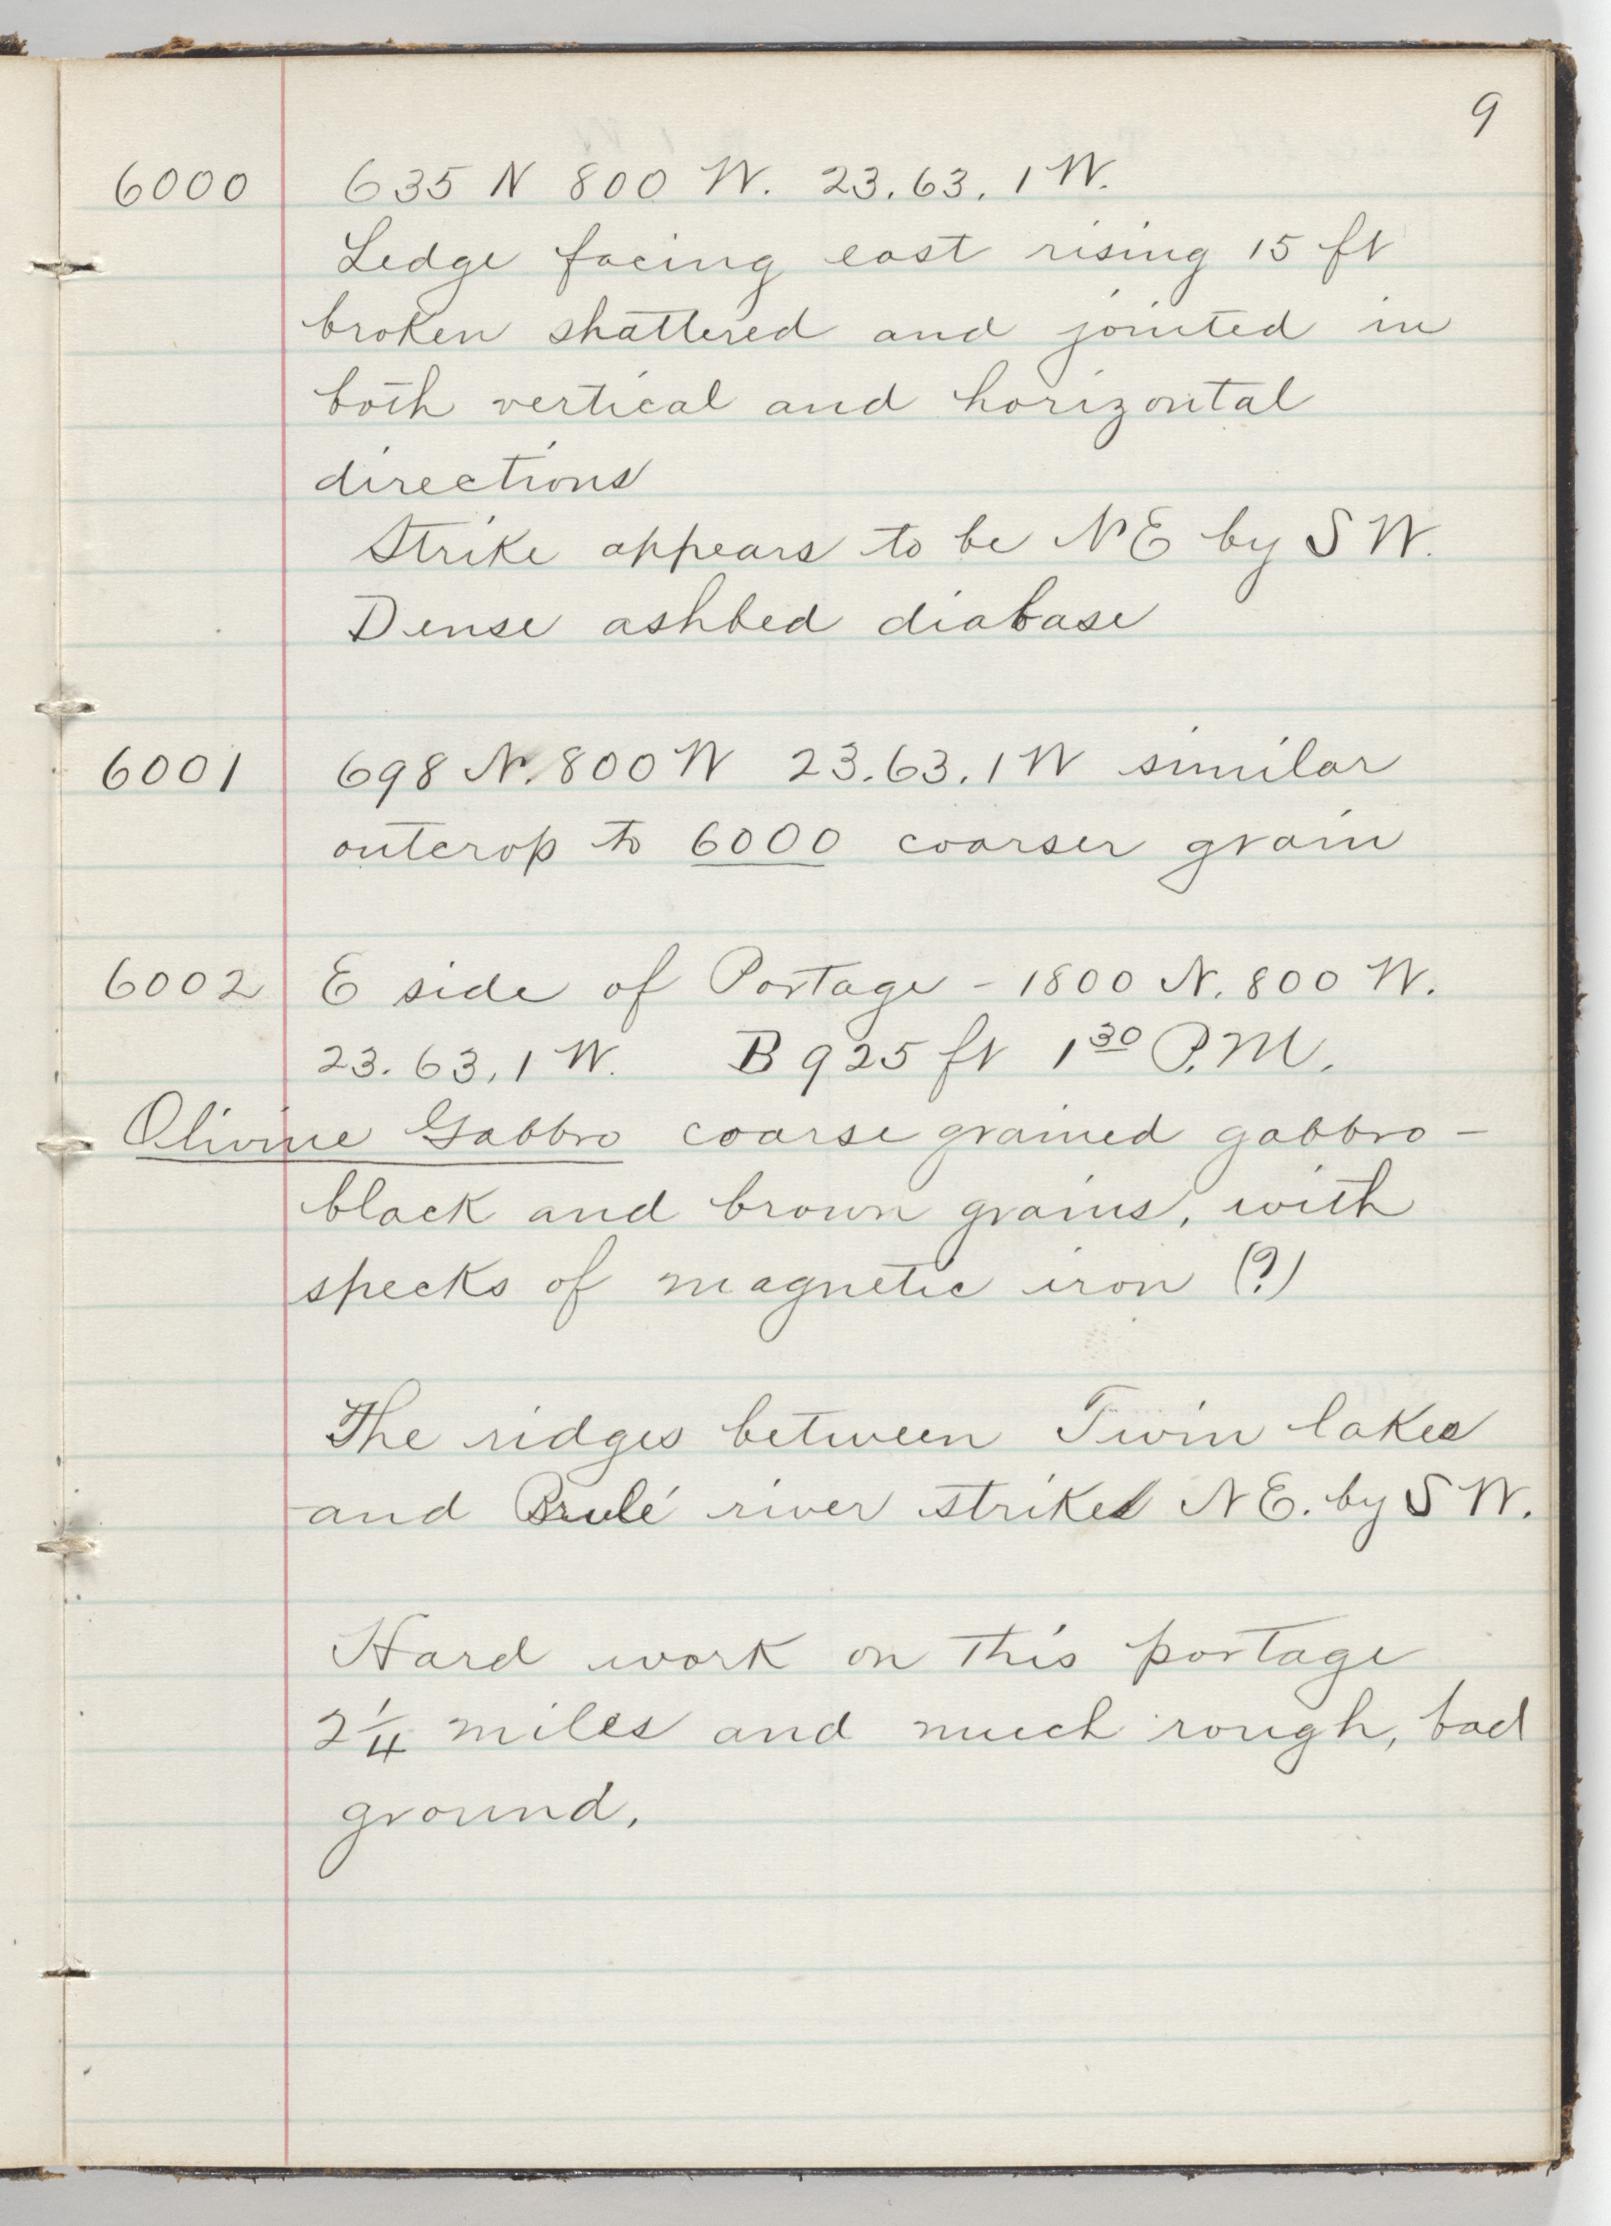 9
6000 635 N 800 W. 23.63.1W.
Ledge facing east rising 15 ft
broken shattered and jointed in
both vertical and horizontal
directions
Strike appears to be NE by SW.
Dense ashbed diabase
6001 698 N. 800 W 23.63.1W similar
outcrop to 6000 coarser grain
6002 E side of Portage - 1800 N. 800 W.
23.63.1W. B 925 ft 1 30 P.M.
Olivine Gabbro coarse grained gabbro -
black and brown grains, with
specks of magnetic iron (?)
The ridges between Twin lakes
and Brulé river strikes NE. by SW.
Hard work on this portage
2 1/4 miles and much rough, bad
ground.